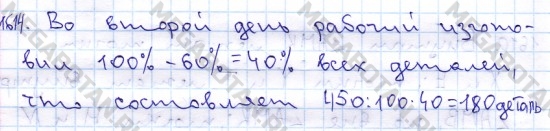 1614. Во второй день рабочий изгото-
вил 100% - 60% = 40% всех деталей,
что составляет 450:100·40=180деталь